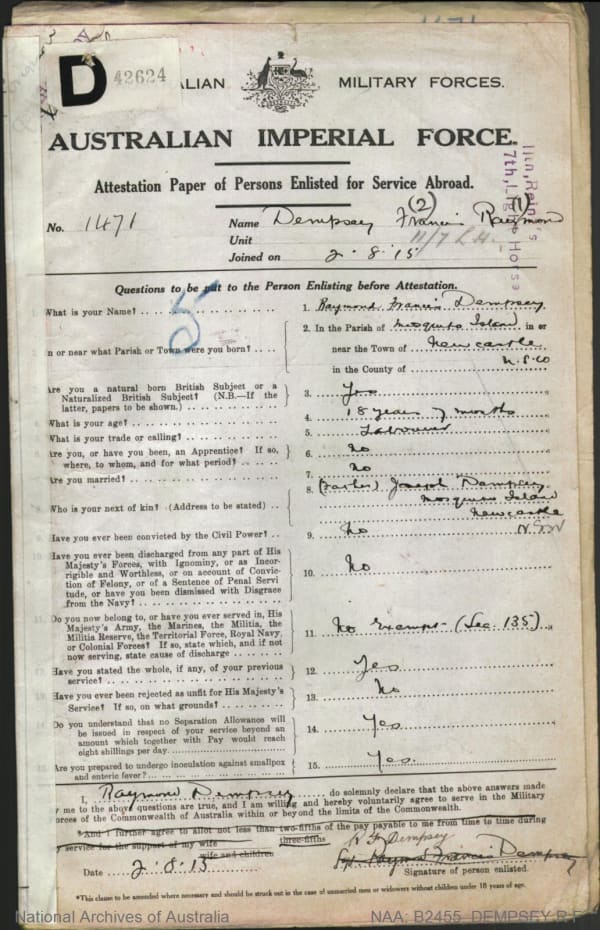 1471
D 42624
ALIAN MILITARY FORCES.
AUSTRALIAN IMPERIAL FORCE.
Attestation Paper of Persons Enlisted for Service Abroad.
11th Reinf's
7th Light Horse
(2) (1)
No. 1471 Name Dempsey Francis Raymond
Unit 11/7 L.H.
Joined on 2.8.15
Questions to be put to the Person Enlisting before Attestation.
25
What is your Name? 1. Raymond Francis Dempsey
In or near what Parish or Town were you born? 2. In the Parish of Mosquito Island in or
near the Town of Newcastle
in the County of N.S.W
Are you a natural born British Subject or a
Naturalized British Subject? (N.B.—If the
latter, papers to be shown.) 3. Yes
What is your age? 4. 18 years 7 months
What is your trade or calling? 5. Labourer
Are you, or have you been, an Apprentice? If so,
where, to whom, and for what period? 6. No
Are you married? 7. No
Who is your next of kin? (Address to be stated) 8. (Father) Joseph Dempsey
Mosquito Island
Newcastle
N.S.W
Have you ever been convicted by the Civil Power? 9. No
Have you ever been discharged from any part of His
Majesty's Forces, with Ignominy, or as Incor-
rigible and Worthless, or on account of Convic-
tion of Felony, or of a Sentence of Penal Servi-
tude, or have you been dismissed with Disgrace
from the Navy? 10. No
Do you now belong to, or have you ever served in, His
Majesty's Army, the Marines, the Militia, the
Militia Reserve, the Territorial Force, Royal Navy,
or Colonial Forces? If so, state which, and if not
now serving, state cause of discharge 11. No Exempt (Sec. 135)
Have you stated the whole, if any, of your previous
service? 12. Yes
Have you ever been rejected as unfit for His Majesty's
Service? If so, on what grounds? 13. No
Do you understand that no Separation Allowance will
be issued in respect of your service beyond an
amount which together with Pay would reach
eight shillings per day. 14. Yes
Are you prepared to undergo inoculation against smallpox
and enteric fever? 15. Yes.
I, Raymond Dempsey do solemnly declare that the above answers made
by me to the above questions are true, and I am willing and hereby voluntarily agree to serve in the Military
Forces of the Commonwealth of Australia within or beyond the limits of the Commonwealth.
*And I further agree to allot not less than two-fifths of the pay payable to me from time to time during
three-fifths
my service for the support of my wife
wife and children
R F Dempsey
Date 2.8.15 Raymond Francis Dempsey
Signature of person enlisted.
*This clause to be amended where necessary and should be struck out in the case of unmarried men or widowers without children under 18 years of age.
National Archives of Australia NAA: B2455, DEMPSEY R F